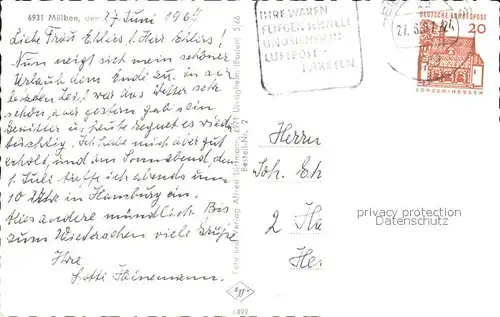 6931 Mülben, den 27. Juni 1967
Liebe Frau Ehlers! Herr Ehlers!
Nun neigt sich mein schöner
Urlaub dem Ende zu. In der
letzten Zeit war das Wetter sehr
schön, aber gestern gab es ein
Gewitter u. heute regnet es wieder
tüchtig. Ich habe mich aber gut
erholt, und am Sonnabend, den
1. Juli treffe ich abends um
10 Uhr in Hamburg ein.
Alles andere mündlich. Bis
zum Wiedersehen viele Grüße
Ihre
Lotti Heinemann.
Foto und Verlag Alfred Dittmann, 6971 Uissigheim (Baden) 5/66
Bestell-Nr. 2
IHRE WAREN
FLIEGEN SCHNELL
UND SICHER IN
LUFTPOST-
PAKETEN
27.6.67
DEUTSCHE BUNDESPOST
20
LORSCH/HESSEN
Herrn
Joh. Eh
2 Ha
privacy protection
Datenschutz
Agfa
1499